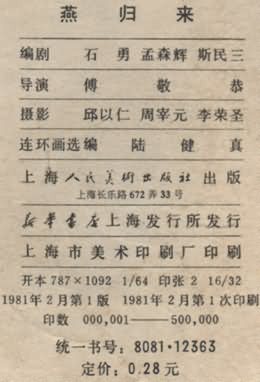 燕归来
编剧 石勇 孟森辉 斯民三
导演 傅敬恭
摄影 邱以仁 周宰元 李荣圣
连环画选编 陆健真
上海人民美术出版社出版
上海长乐路672弄33号
新华书店上海发行所发行
上海市美术印刷厂印刷
开本 787×1092 1/64 印张 2 16/32
1981年2月第1版 1981年2月第1次印刷
印数 000,001——500,000
统一书号：8081·12363
定价：0.28元